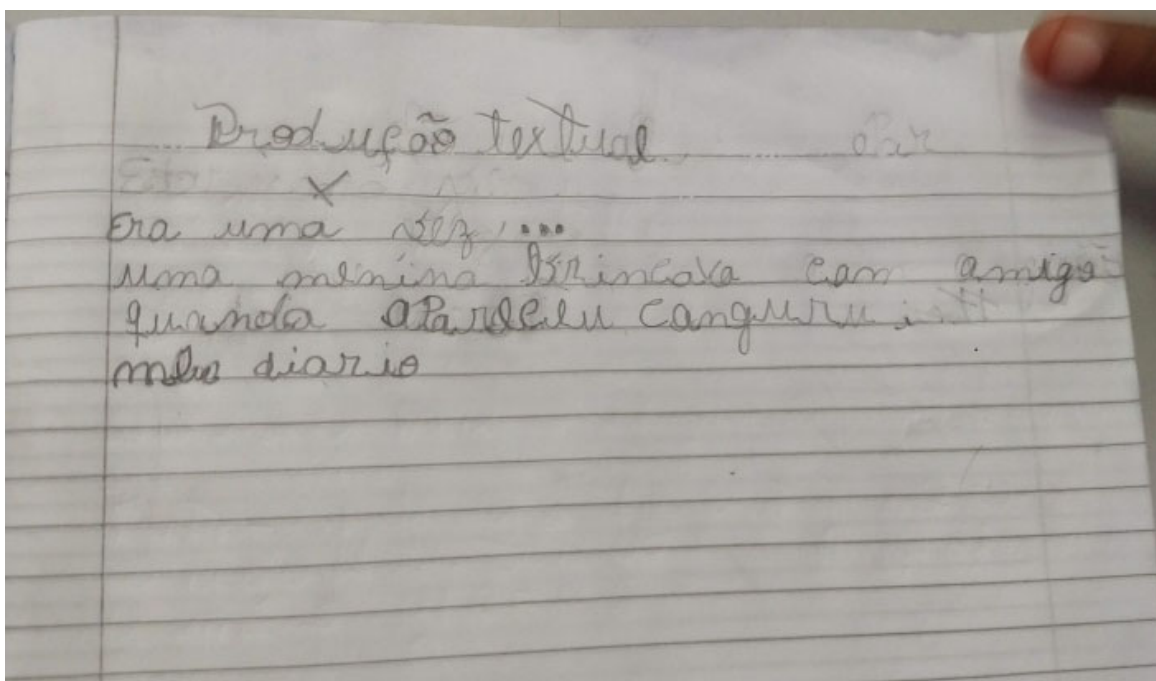 Produção textual
X
Era uma vez, ...
uma menina brincava can amigo
quando apareceu canguru.
meu diario